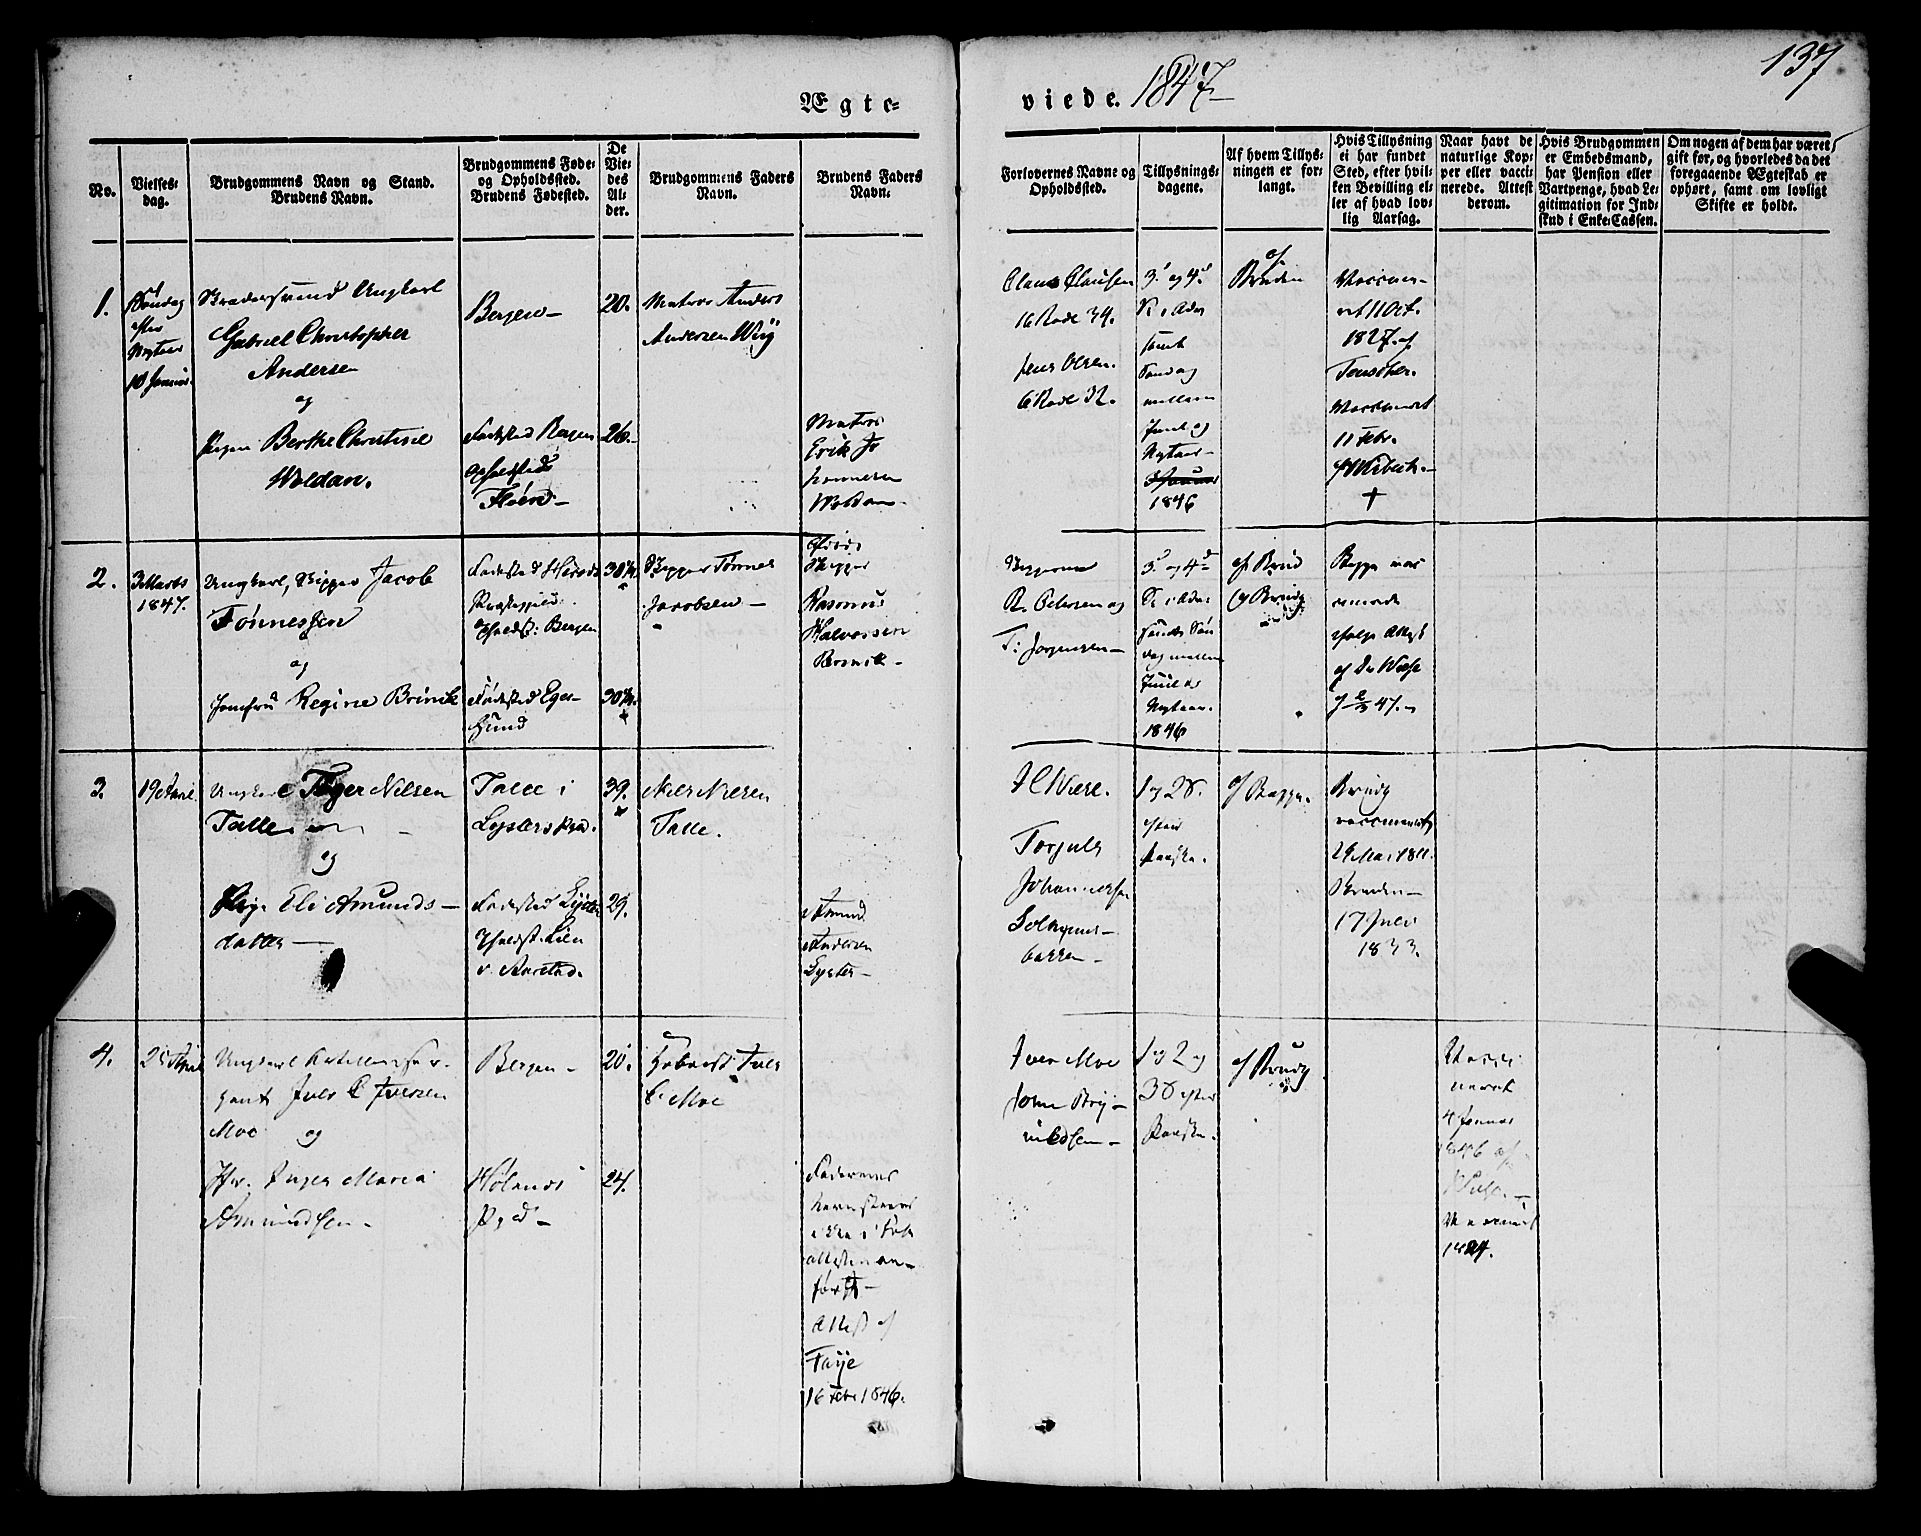 137
Ægte-
viede. 1847
No.
Vielses-
dag.
Brudgommens Navn og Stand.
Brudens Navn.
Brudgommens Føde-
og Opholdssted.
Brudens Fødested.
De
Vie-
des
Al-
der.
Brudgommens Faders
Navn.
Brudens Faders
Navn.
Forlovernes Navne og
Opholdssted.
Tillysnings-
dagene.
Af hvem Tillys-
ningen er for-
langt.
Hvis Tillysning
ei har fundet
Sted, efter hvil-
ken Bevilling el-
ler af hvad lov-
lig Aarsag.
Naar havt de
naturlige Kop-
per eller vacci-
nerede. Attest
derom.
Hvis Brudgommen
er Embedsmand,
har Pension eller
Vartpenge, hvad Le-
gitimation for Ind-
skud i Enke-Cassen.
Om nogen af dem har været
gift før, og hvorledes da det
foregaaende Ægteskab er
ophørt, samt om lovligt
Skifte er holdt.
1.
Søndag
efter
Nytaar
10 Januar.
Ungkarl
Gabriel Christopher
Andersen
og
Pigen Berthe Christine
Woldan.
Bergen
Fødested Bergen
Opholdsted
Fløen
20.
26.
Matros Anders
Andersen Wiig
Matros
Erik Jo
hannesen
Woldan.
Claus Clausen
16 Rode 34.
Jens Olsen.
6 Rode 32.
3 og 4
S. i Adv
samt
Søndag
mellem
Juul og
Nytaar
1846
af
Bruden
Vaccine-
ret 11 Oct.
1827. af
Vaccineret
11 Febr.
†
2.
3 Marts
1847.
Ungkarl, Skipper Jacob
Tønnessen
og
Jomfru Regine Brinik
Fødested
Præstegjeld.
Opholdst: Bergen
Fødested Eger-
sund
30
30
Skipper Tønnes
Jacobsen
Skipper
Rasmus
Halvorsen
Skipperne
R. Petersen og
T: Jørgensen
3 og 4
S. i Adv
samt Søn
dag mellem
Juul og
Nytaar.
1846
af Brud
og Brudg
Begge vac
cinerede
ifølge Attest
af Dr Wisse
47.
3.
19 April
Ungkarl Tøger Nilsen
Talle
og
Pige Eli Amunds-
datter
Talle i
Lysters Pgd.
Fødested Lyster
Opholdst. Lien
v. Aarstad.
39.
29.
Niels Nielsen
Talle.
Amund
Andersen
Lyster
Torjuls
Johannessen
Solhejms-
bakken
1 og 2 S.
efter
Paaske.
af Begge.
Brudg
vaccineret
29 Mai 1811.
Bruden
17 Juli
1833.
4.
25 April
Ungkarl Artilleriser-
gant Iver C Iversen
Moe og
Jfr. Inger Maria
Amundsen
Bergen
Hølands
Pgd
20.
24.
Iver
C. Moe
Faderens
Navn staaer
ikke i
Attesten an-
ført
Attest af
Faye
16 Febr 1846.
Iver Moe
1 og 2 og
3 S efter
Paaske.
af Brudg
Vacci-
neret
4 Januar
1846 af
Vaccineret
1824.